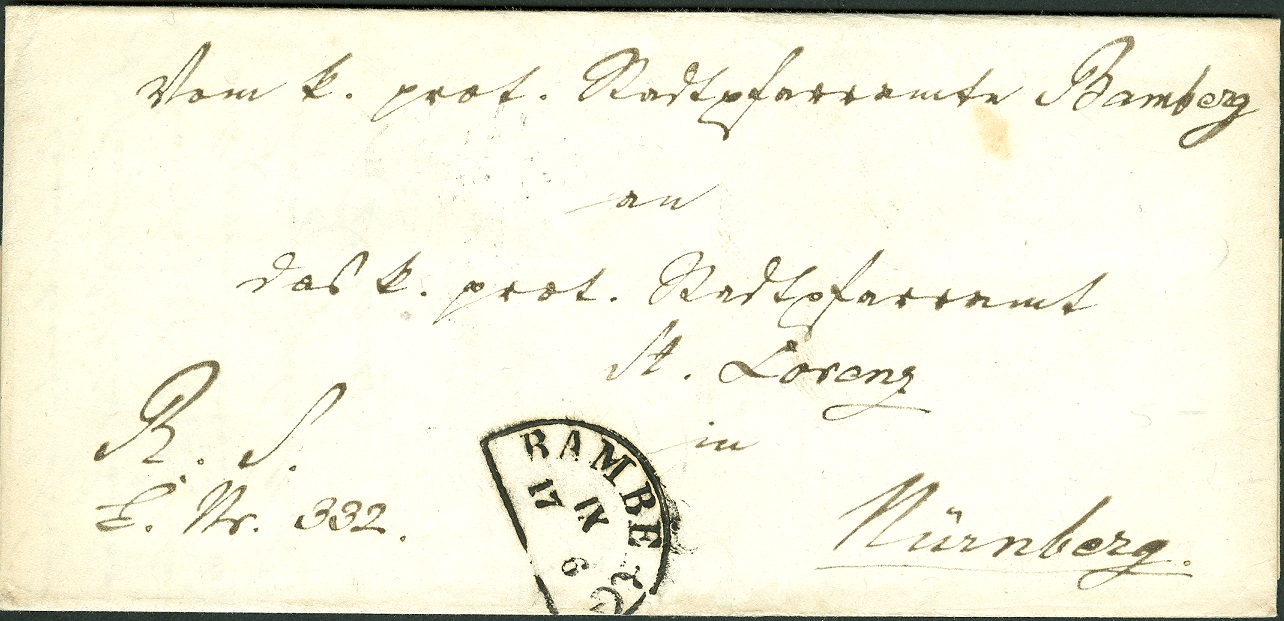 Vom k. prot. Stadtpfarramte Bamberg
an
das k. prot. Stadtpfarramt
St. Lorenz
in
Nürnberg.
R. S.
E. Nr. 332.
BAMBE
17 IX
6